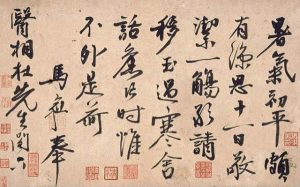 暑氣初平頗
有涼思十一日敬
潔一觴請
移玉過寒舍
話舊日时惟
不外是荷
馬齊奉
醫相杜先生閣下